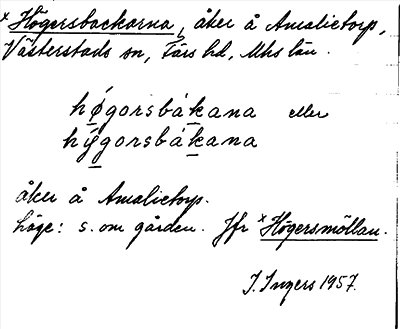 × Högersbackarna, åker å Amalietorp,
Västerstads sn, Färs hd, Mhs län.
hǿgorsbákana eller
hýgorsbákana
åker å Amalietorp.
Läge: s. om gården. Jfr × Högersmöllan.
I. Ingers 1957.